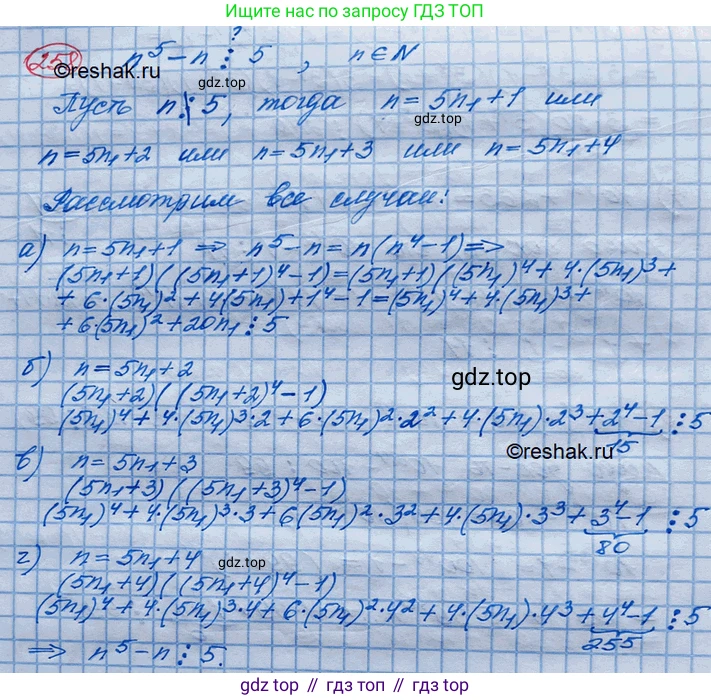 Ищите нас по запросу ГДЗ ТОП
258 n⁵ − n ⋮ 5 , n ∈ N
?
©reshak.ru
gdz.top
Пусть n ⋮̸ 5, тогда n = 5n₁ + 1 или
gdz.top
n = 5n₁ + 2 или n = 5n₁ + 3 или n = 5n₁ + 4
Рассмотрим все случаи:
а) n = 5n₁ + 1 ⇒ n⁵ − n = n(n⁴ − 1) ⇒
(5n₁ + 1)((5n₁ + 1)⁴ − 1) = (5n₁ + 1)((5n₁)⁴ + 4·(5n₁)³ +
+ 6·(5n₁)² + 4(5n₁) + 1⁴ − 1 = (5n₁)⁴ + 4·(5n₁)³ +
+ 6·(5n₁)² + 20n₁ ⋮ 5
б) n = 5n₁ + 2
(5n₁ + 2)((5n₁ + 2)⁴ − 1)
gdz.top
(5n₁)⁴ + 4·(5n₁)³·2 + 6·(5n₁)²·2² + 4·(5n₁)·2³ + 2⁴ − 1 ⋮ 5
15
©reshak.ru
в) n = 5n₁ + 3
(5n₁ + 3)((5n₁ + 3)⁴ − 1)
(5n₁)⁴ + 4·(5n₁)³·3 + 6(5n₁)²·3² + 4·(5n₁)·3³ + 3⁴ − 1 ⋮ 5
80
г) n = 5n₁ + 4
gdz.top
(5n₁ + 4)((5n₁ + 4)⁴ − 1)
(5n₁)⁴ + 4·(5n₁)³·4 + 6·(5n₁)²·4² + 4·(5n₁)·4³ + 4⁴ − 1 ⋮ 5
255
⇒ n⁵ − n ⋮ 5.
gdz top // гдз топ // gdz top